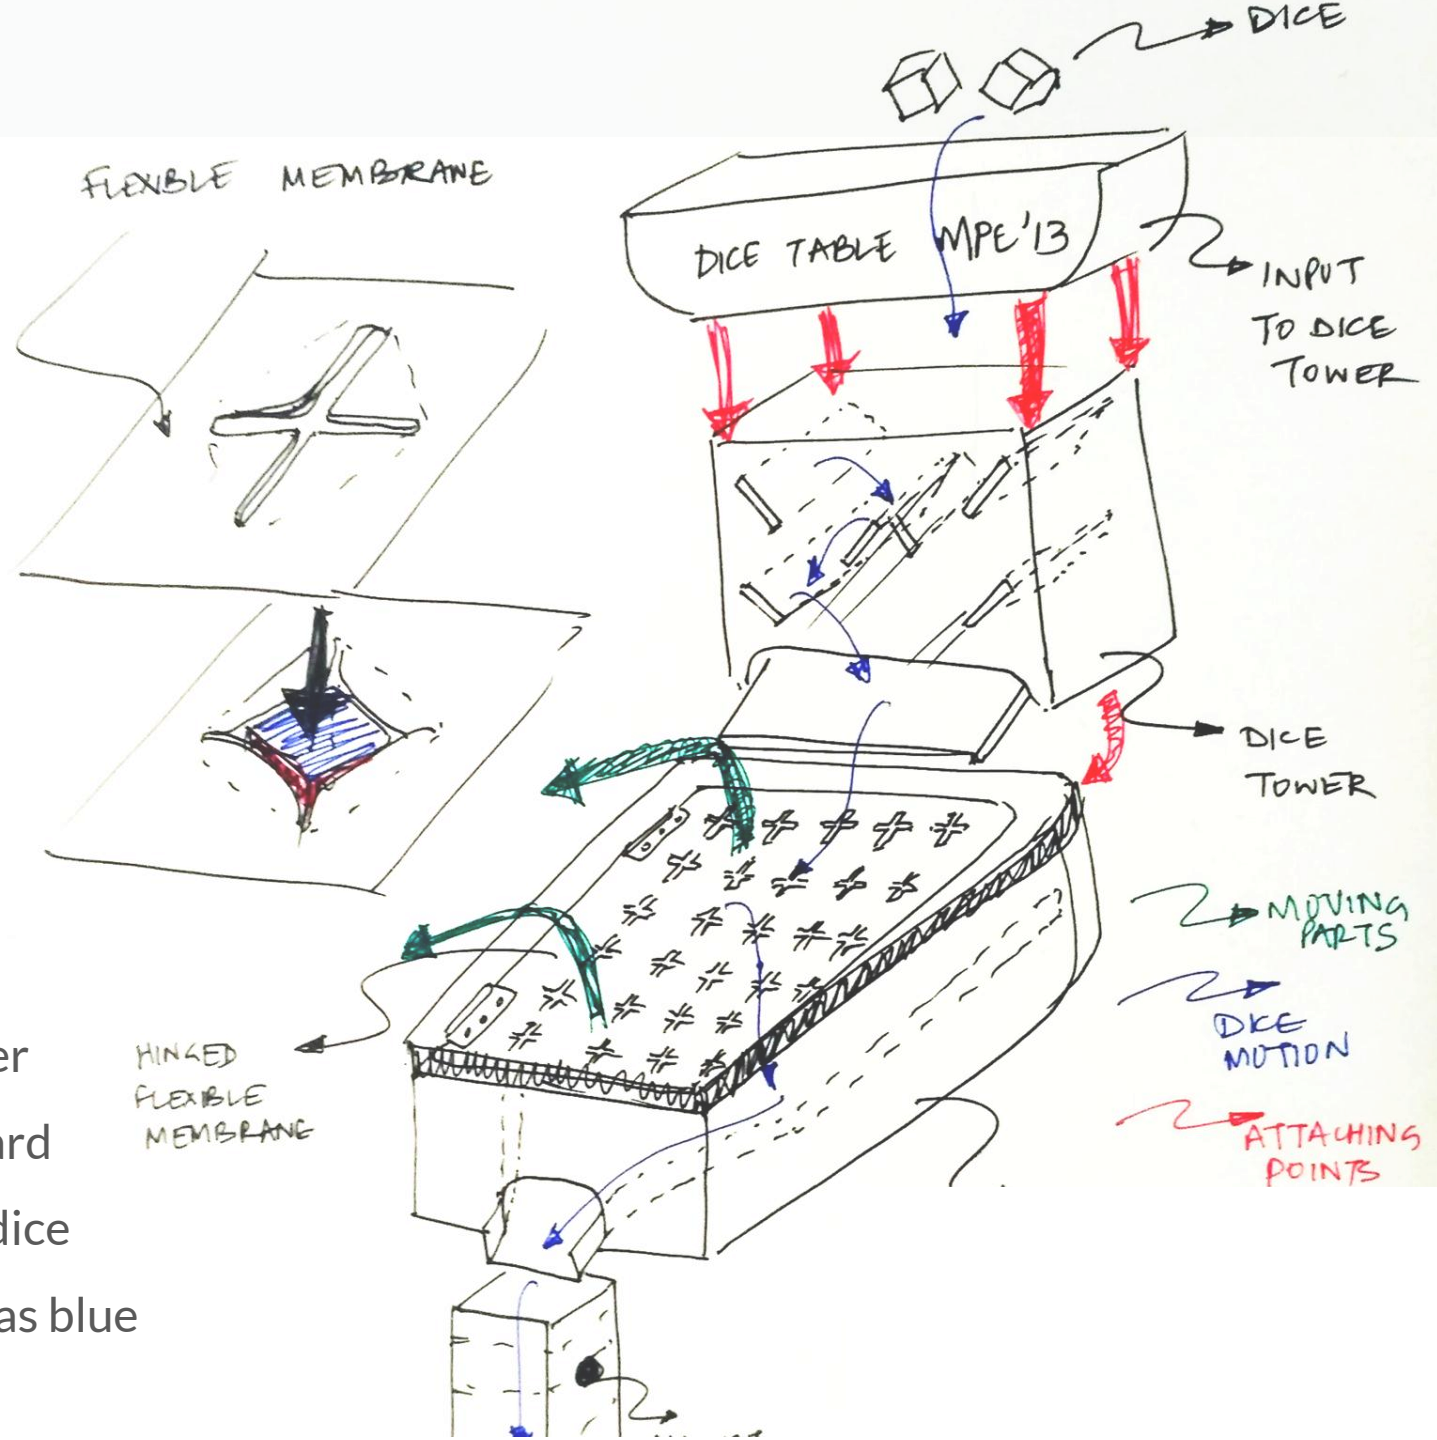 DICE
FLEXIBLE MEMBRANE
DICE TABLE MPE'13
INPUT
TO DICE
TOWER
DICE
TOWER
MOVING
PARTS
DICE
MOTION
ATTACHING
POINTS
HINGED
FLEXIBLE
MEMBRANE
er
ard
dice
as blue